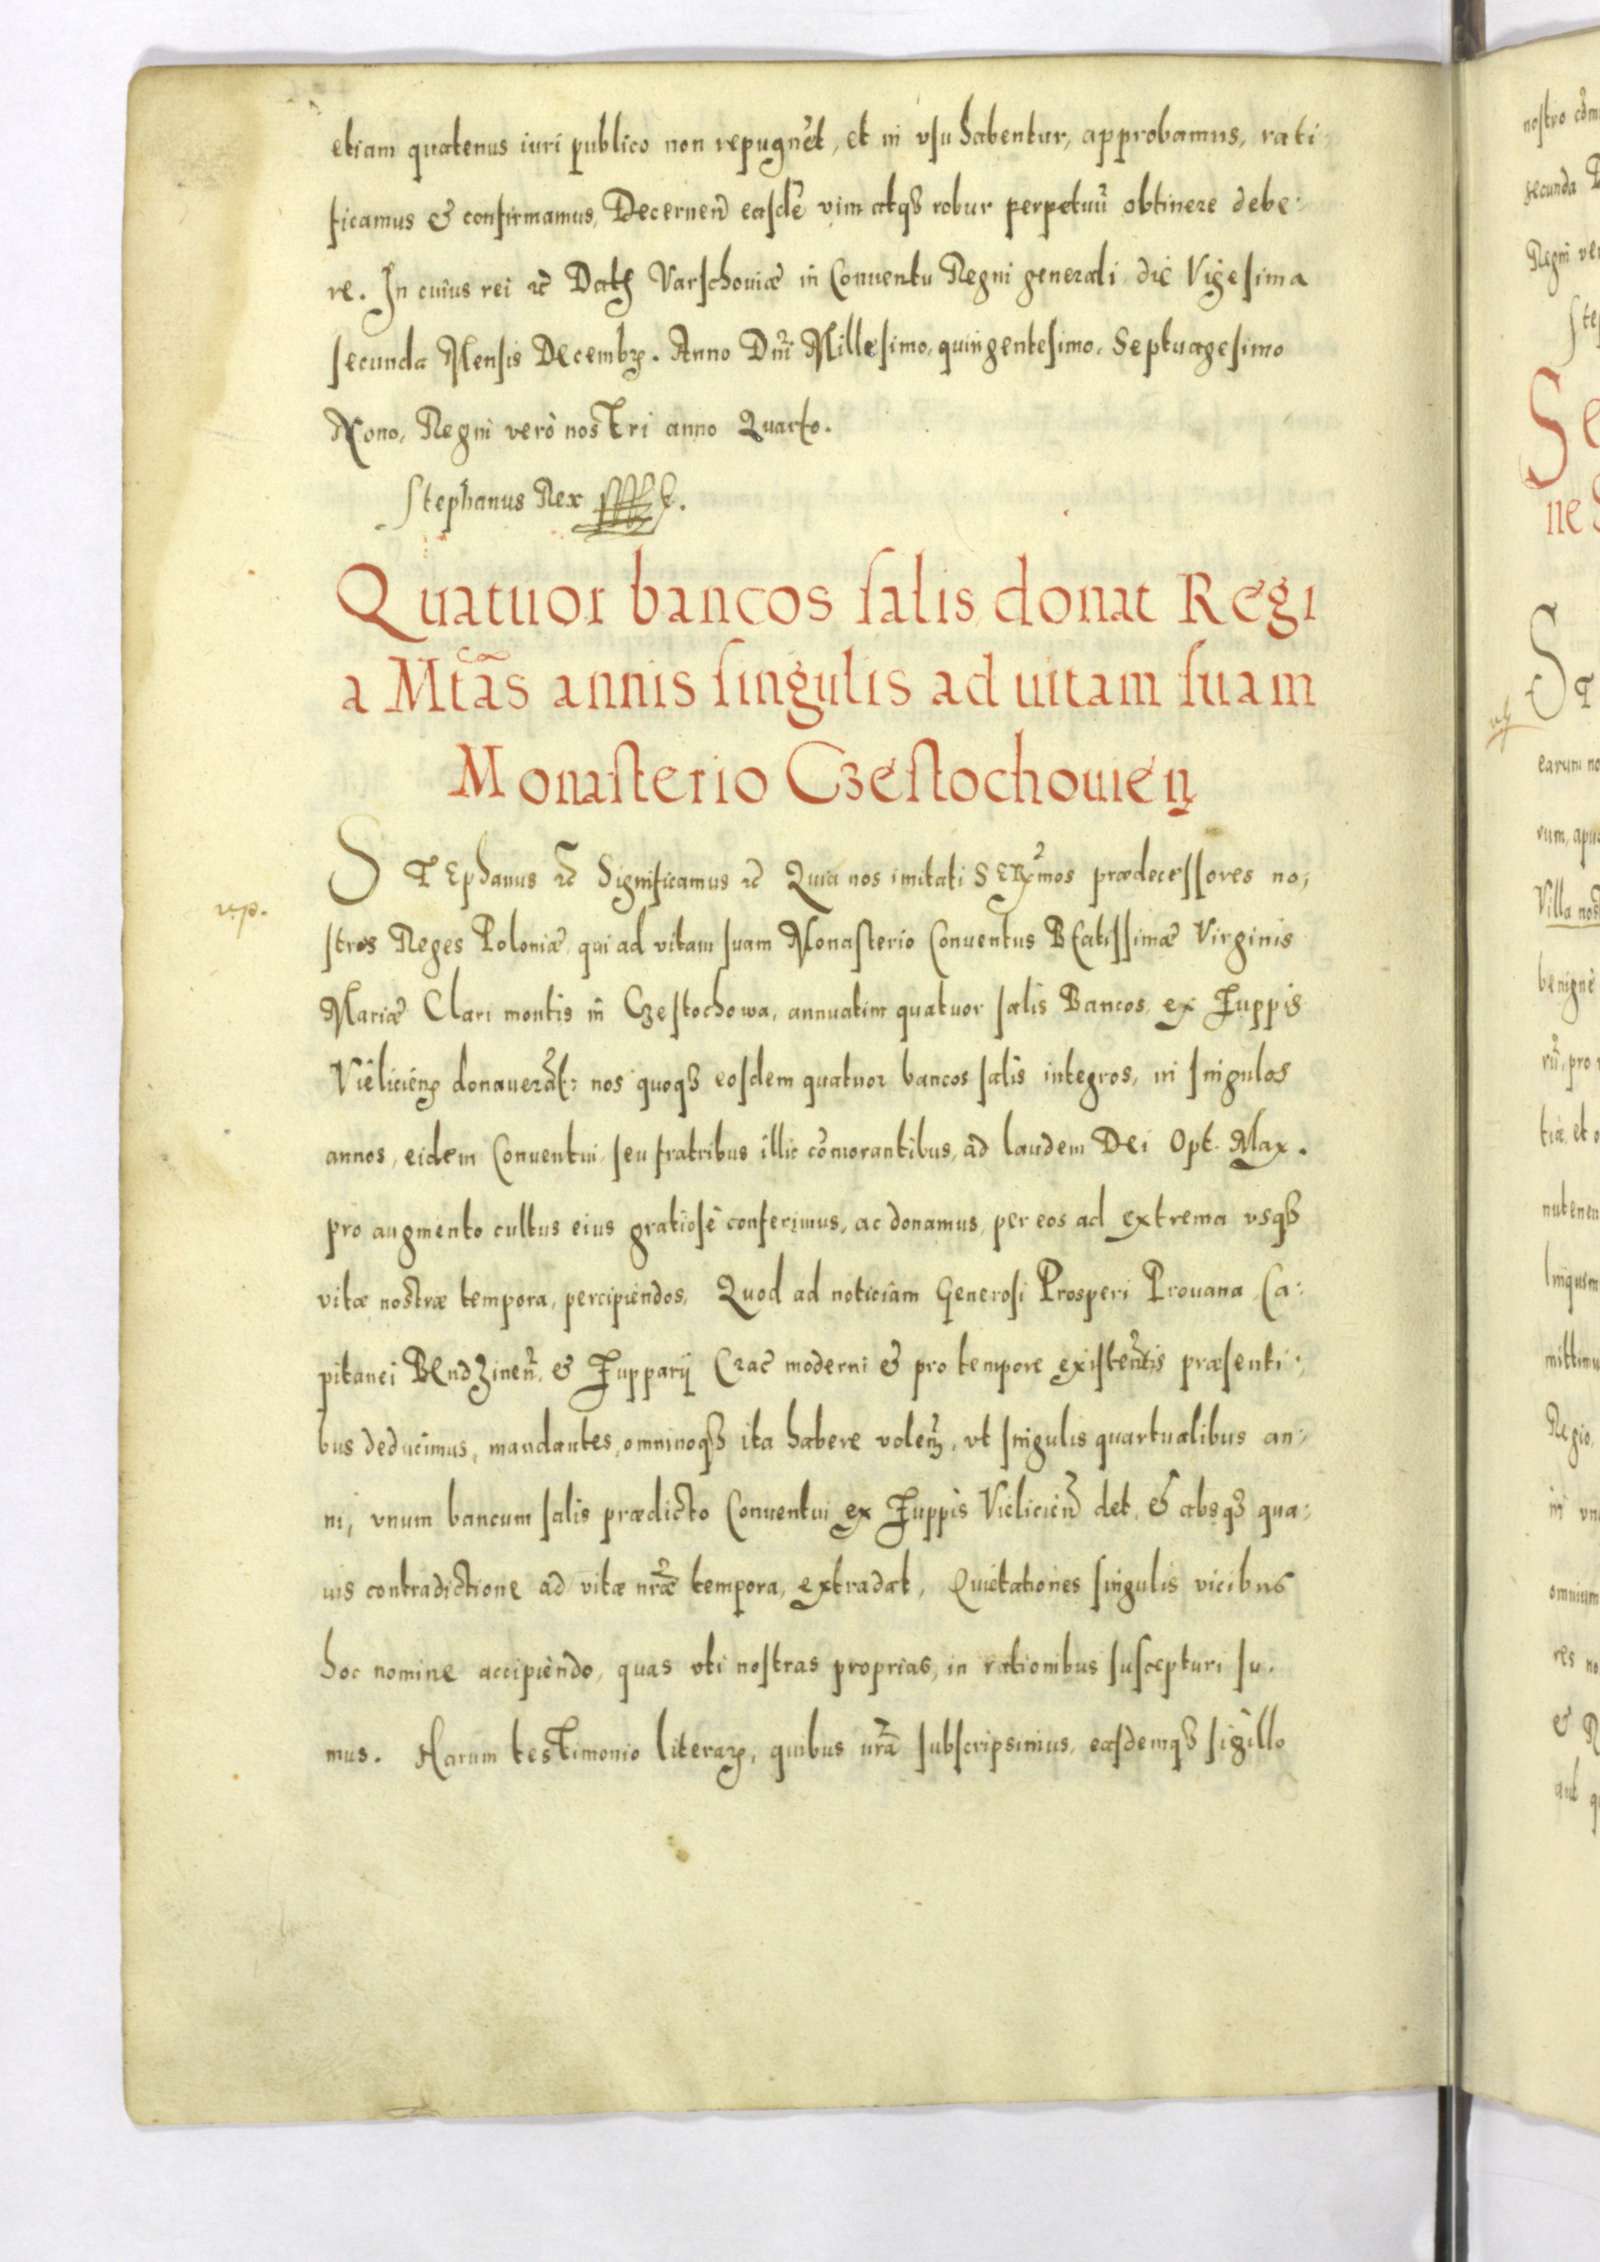 etiam quatenus iuri publico non repugnẽt, et in vsu habentur, approbamus, rati
ficamus & confirmamus, Decernen̄ easdẽ vim atqȝ robur perpetuũ obtinere debe:
re. In cuius rei ꝛc̄ Datꝭ Varschouiæ in Conuentu Regni generali die Vigesima
secunda Mensis Decembꝝ. Anno Dñi Millesimo, quingentesimo, Septuagesimo
Nono, Regni verò nostri anno Quarto.
Stephanus Rex
Quatuor bancos salis donat Regi
a Mtãs annis singulis ad uitam suam
Monasterio Czestochouien̄
STEphanus ꝛc̄ Significamus ꝛc̄ Quia nos imitati SERmos prædecessores no;
stros Reges Poloniæ, qui ad vitam suam Monasterio Conuentus BEatissimæ Virginis
Mariæ Clari montis in Czestochowa, annuatim quatuor salis Bancos, ex Juppis
Vieliciēn donauerãt: nos quoqȝ eosdem quatuor bancos salis integros, in singulos
annos, eidem Conuentui, seu fratribus illic cõmorantibus, ad laudem Dei Opt. Max.
pro augmento cultus eius gratiosè conferimus, ac donamus, per eos ad extrema vsqȝ
vitæ nostræ tempora, percipiendos, Quod ad noticiam Generosi Prosperi Prouana Ca:
pitanei BEndzinen̄, & Jupparij Crac̄ moderni & pro tempore existen̄tis præsenti:
bus deducimus, mandantes, omninoqȝ ita habere volen̄, vt singulis quartualibus an:
ni, vnum bancum salis prædicto Conuentui ex Juppis Vielicien̄ det, & absqȝ qua:
uis contradictione ad vitæ nr̃æ tempora, extradat, Quietationes singulis vicibus
hoc nomine accipiendo, quas vti nostras proprias, in rationibus suscepturi su.
mus. Harum testimonio literaꝝ, quibus nr̃a subscripsimus, easdemqȝ sigillo